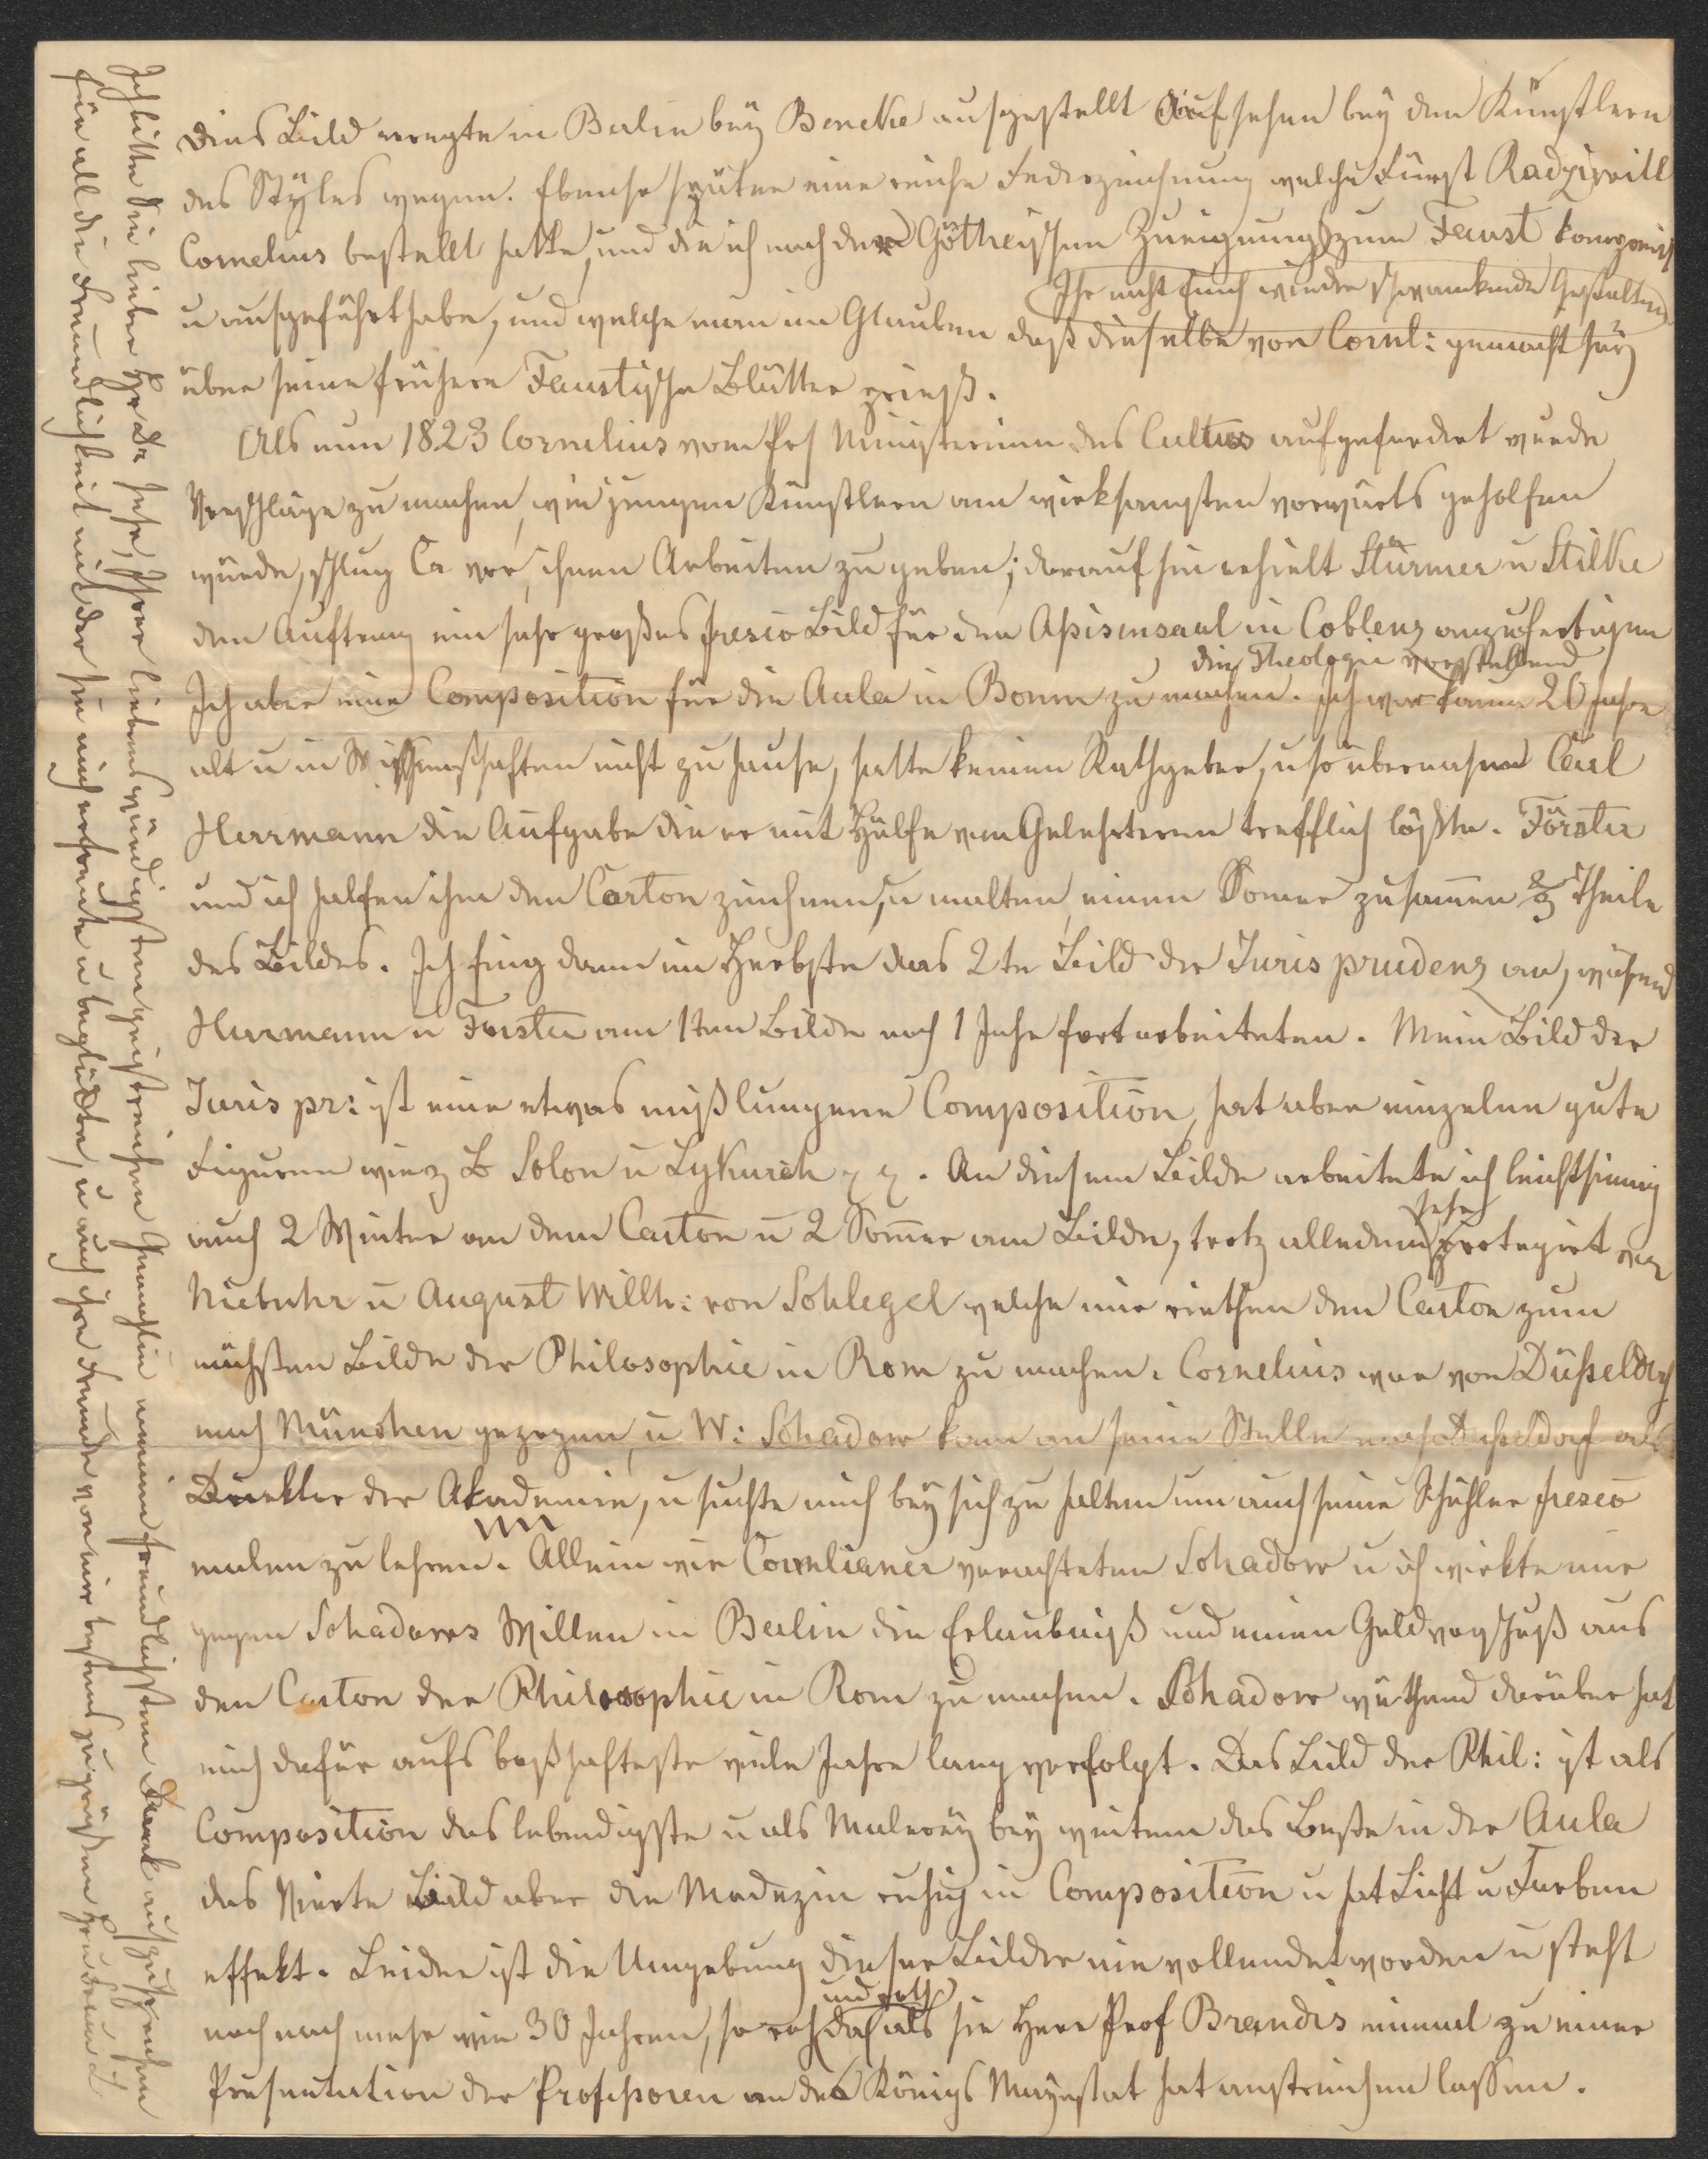 Dies Bild erregte in Berlin bey Beneke ausgestellt Aufsehen bey den Künstlern
des Styles wegen. Ebenso später eine reiche Federzeichnung welche Fürst Radziwill
Cornelius bestellt hatte, und die ich nach der Götheischen Zueignung zum Faust komponirt
Ihr naht Euch wieder schwankende Gestalten
u ausgeführt habe, und welche man im Glauben daß dieselbe von Cornl: gemacht sey
über seine frühern Faustische Blätter prieß.
Als nun 1823 Cornelius vom Ministerium des Cultus aufgefordert wurde
Vorschläge zu machen, wie jungen Künstlern am wirksamsten vorwärts geholfen
würde, schlug Co vor, ihnen Arbeiten zu geben; darauf hin erhielt Stürmer u Stilke
den Auftrag ein sehr großes fresco Bild für den Assisensaal in Coblenz anzufertigen
die Theologie vorstellend
Ich aber eine Composition für die Aula in Bonn zu machen. Ich war kaum 20 Jahre
alt u in Wissenschaften nicht zu Hause, hatte keinen Rathgeber, u so übernahm Carl
Herrmann die Aufgabe die er mit Hülfe von Gelehrteren trefflich lößte. Förster
und ich halfen ihm den Carton zeichnen, u malten einen Somer zusamen 2/3 Theile
des Bildes. Ich fing dann im Herbste das 2te Bild der Jurisprudenz an, während
Herrmann u Förster am 1ten Bilde noch 1 Jahr fortarbeiteten. Mein Bild der
Juris pr: ist eine etwas mißlungene Composition, hat aber einzelne gute
Figuren wie z B Solon u Lykurch. An diesem Bilde arbeitete ich leichtsinnig
sehr
auch 2 Winter an dem Carton u 2 Somer am Bilde, trotz alledem protegirt von
Niebuhr u August Willh: von Schlegel welche mir riethen den Carton zum
nächsten Bilde der Philosophie in Rom zu machen. Cornelius war von Düsseldorf
nach München gezogen, u W: Schadow kam an seine Stelle nach Düsseldorf als
Direktor der Akademie, u suchte mich bey sich zu halten um auch seine Schühler fresco
malen zu lehren. Allein wir Cornelianer verachteten Schadow u ich wirkte mir
gegen Schadows Willen in Berlin die Erlaubniß und einen Geldvorschuß aus
den Carton der Philosophie in Rom zu machen. Schadow wüthend darüber hat
mich dafür aufs boßhafteste viele Jahre lang verfolgt. Das Bild der Phil: ist als
Composition das lebendigste u als Malerey bey weitem das Beste in der Aula
das Vierte Bild aber die Medezin ruhig in Composition u hat Licht u Farben
effekt. Leider ist die Umgebung dieser Bilder nie vollendet worden u steht
und roth
noch nach mehr wie 30 Jahren, so roh da als sie Herr Prof Brandis einmal zu einer
Presentation der Professoren an des Königs Mayestat hat anstreichen lassen.
Ich bitte Sie lieber Herr Dr sehr, Ihrer liebenswürdigsten geistreichen Gemahlin meinen freundlichsten Dank auszusprechen
für all die Freundlichkeit mit der sie mich erfreute u beglückte, u auch Ihre Freunde von mir bestens zu grüßen